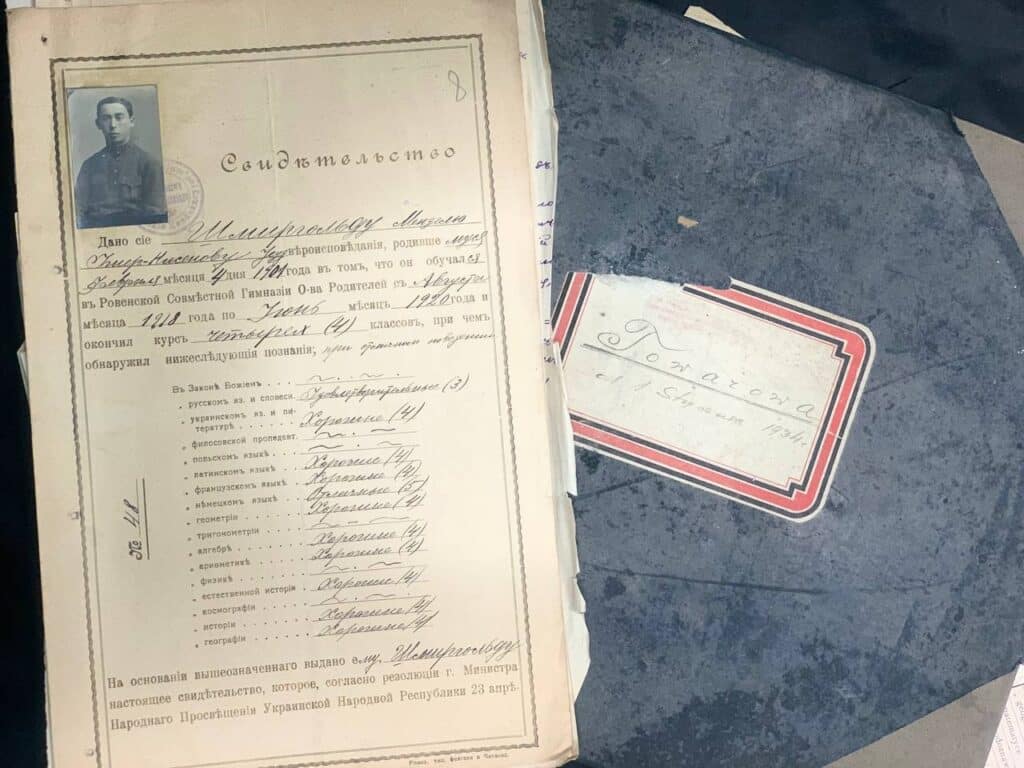 8
Свидѣтельство
Дано сіе Шмиргольду Менделю
вѣроисповѣданія, родивше муся
Февраля мѣсяца 4 дня 1901 года въ томъ, что онъ обучался
въ Ровенской Совмѣстной Гимназіи О-ва Родителей съ Августа
мѣсяца 1918 года по Іюнь мѣсяцъ 1920 года и
окончилъ курсъ четырех (4) классовъ, при чемъ
обнаружилъ нижеслѣдующія познанія; при отличном поведении
Въ Законѣ Божіемъ
„ русскомъ яз. и словесн. Удовлетворительные (3)
„ украинскомъ яз. и литературѣ Хорошие (4)
„ философской пропедевт.
„ польскомъ языкѣ
„ латинскомъ языкѣ Хорошие (4)
„ французскомъ языкѣ Хорошие (4)
„ нѣмецкомъ языкѣ Отличные (5)
„ геометріи Хорошие (4)
„ тригонометріи
„ алгебрѣ Хорошие (4)
„ ариѳметикѣ Хорошие (4)
„ физикѣ
„ естественной исторіи Хорошие (4)
„ космографіи
„ исторіи Хорошие (4)
„ географіи Хорошие (4)
№ 48
На основаніи вышеозначеннаго выдано ему, Шмиргольду
настоящее свидѣтельство, которое, согласно резолюціи г. Министра
Народнаго Просвѣщенія Украинской Народной Республики 23 апрѣ-
Towarowa
1934 r.